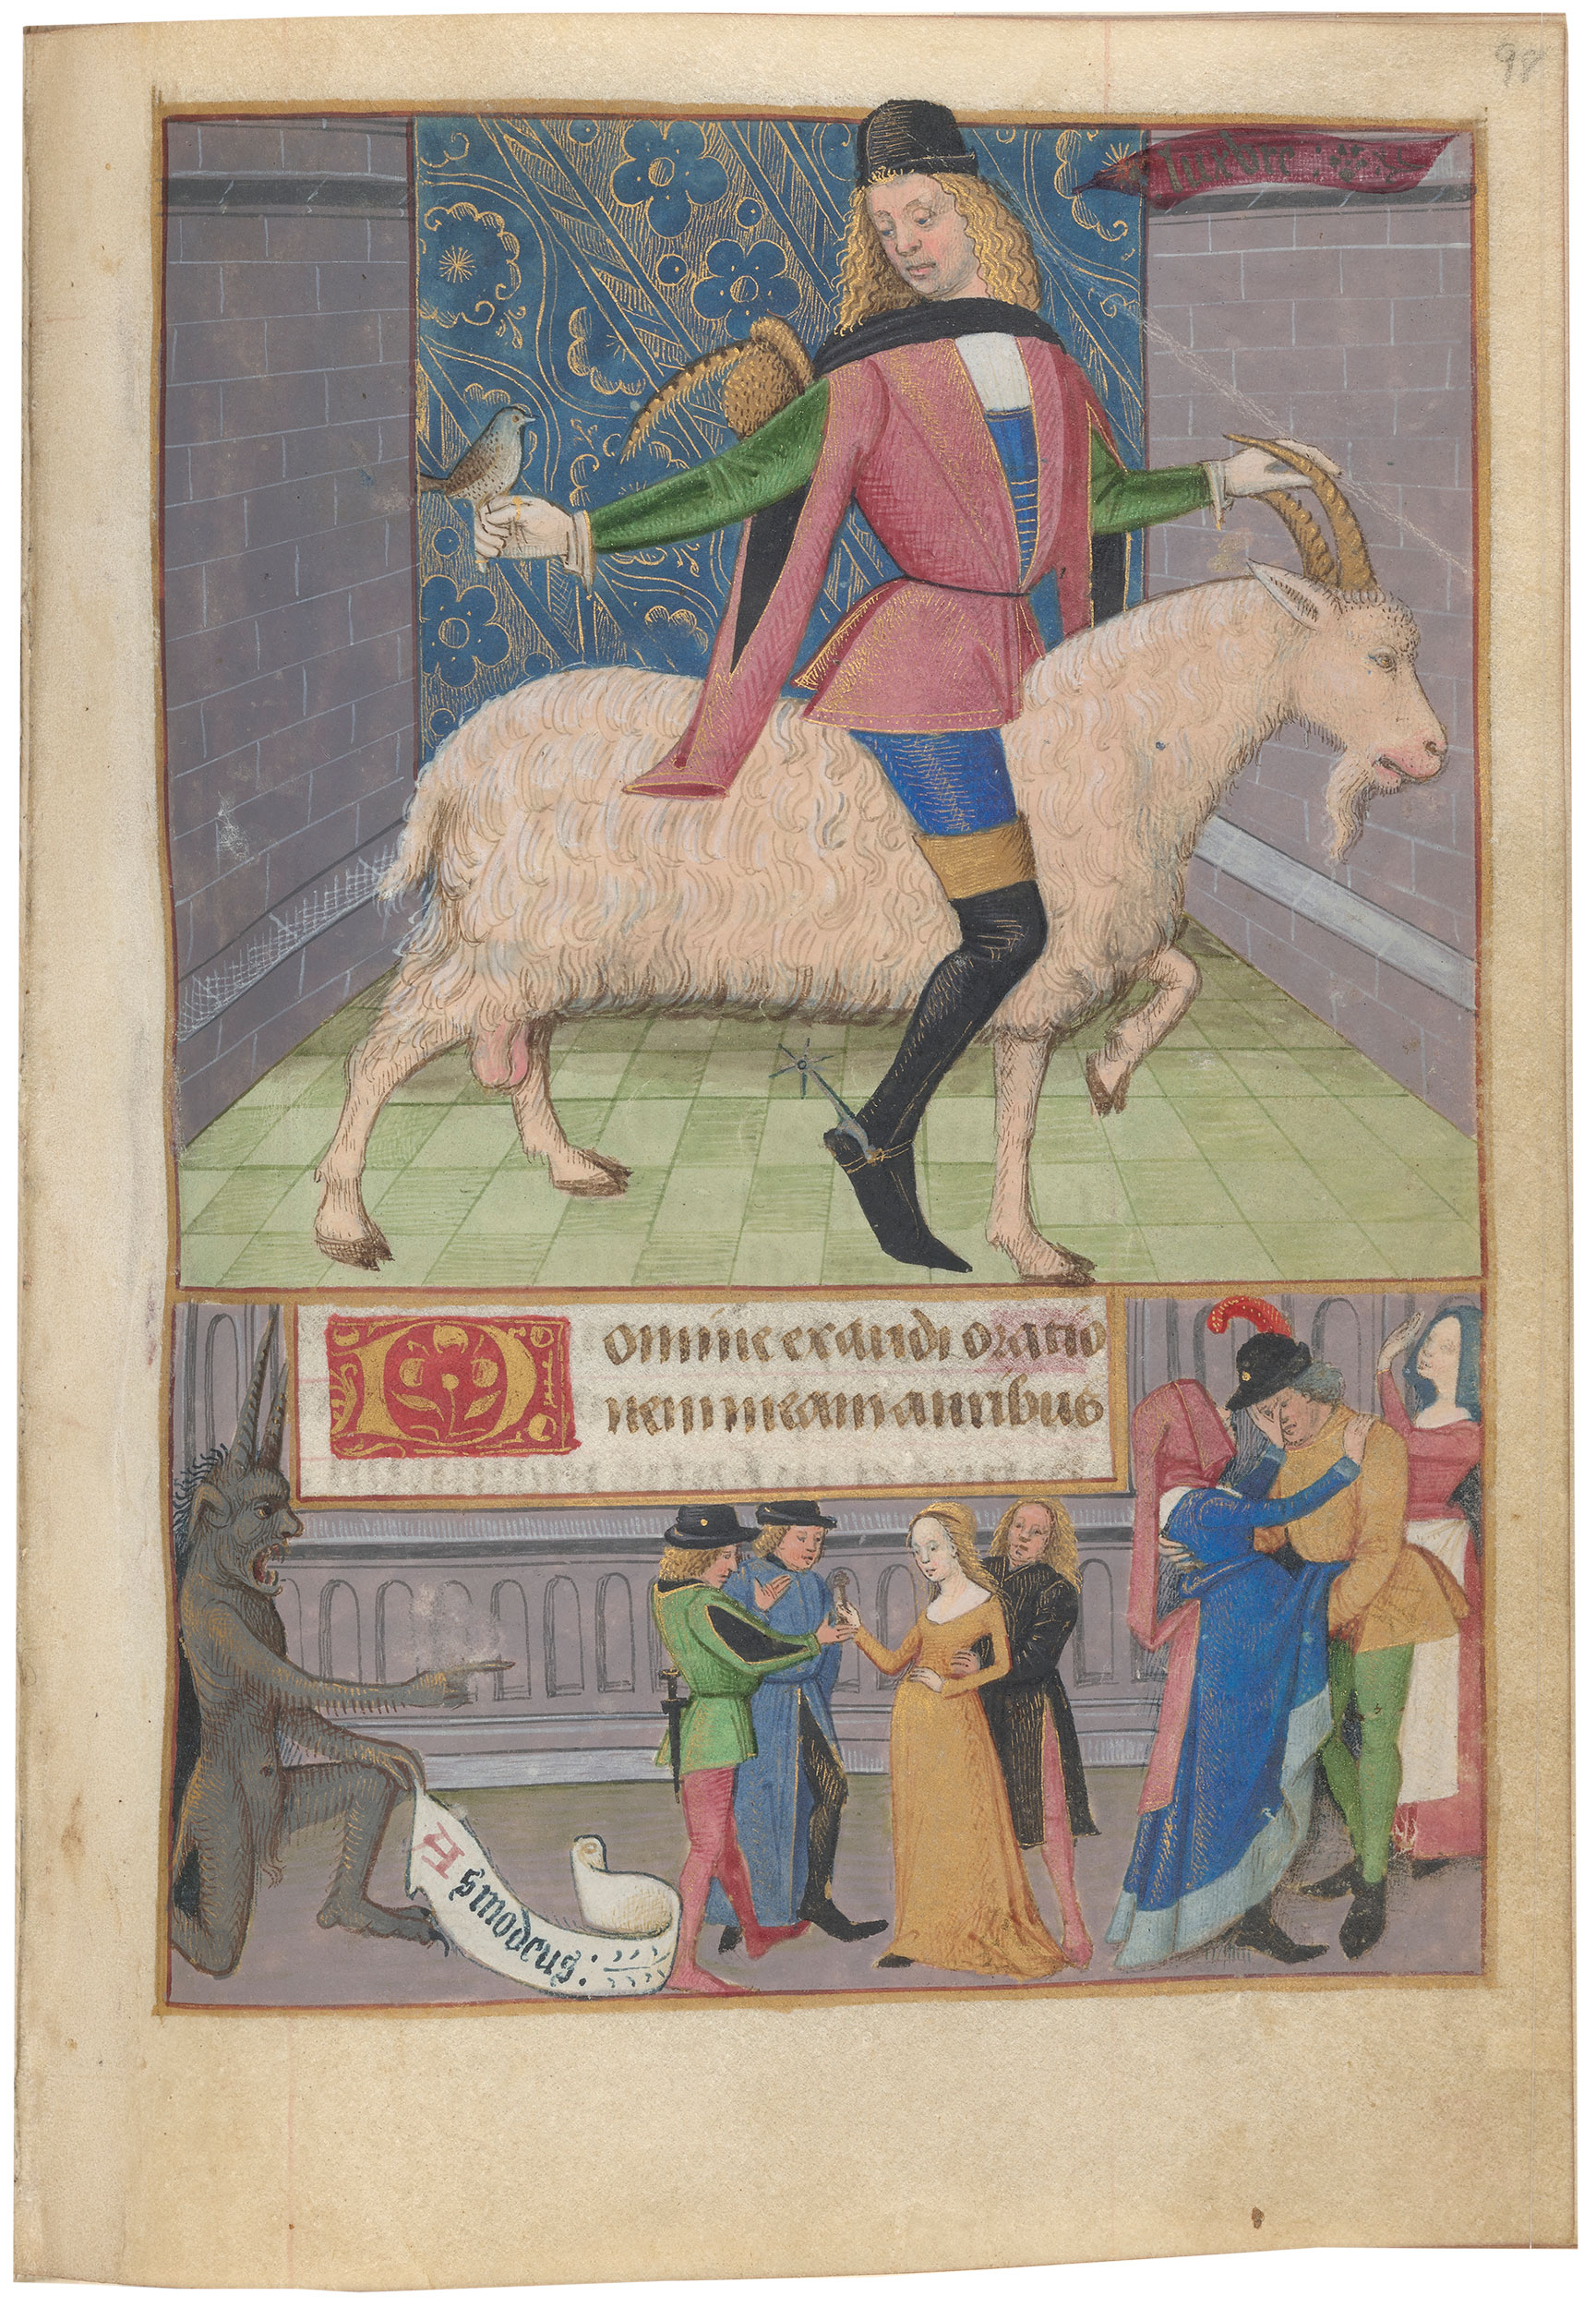 98
Luxure :
Domine exaudi oratio
nem meam auribus
Asmodeus :